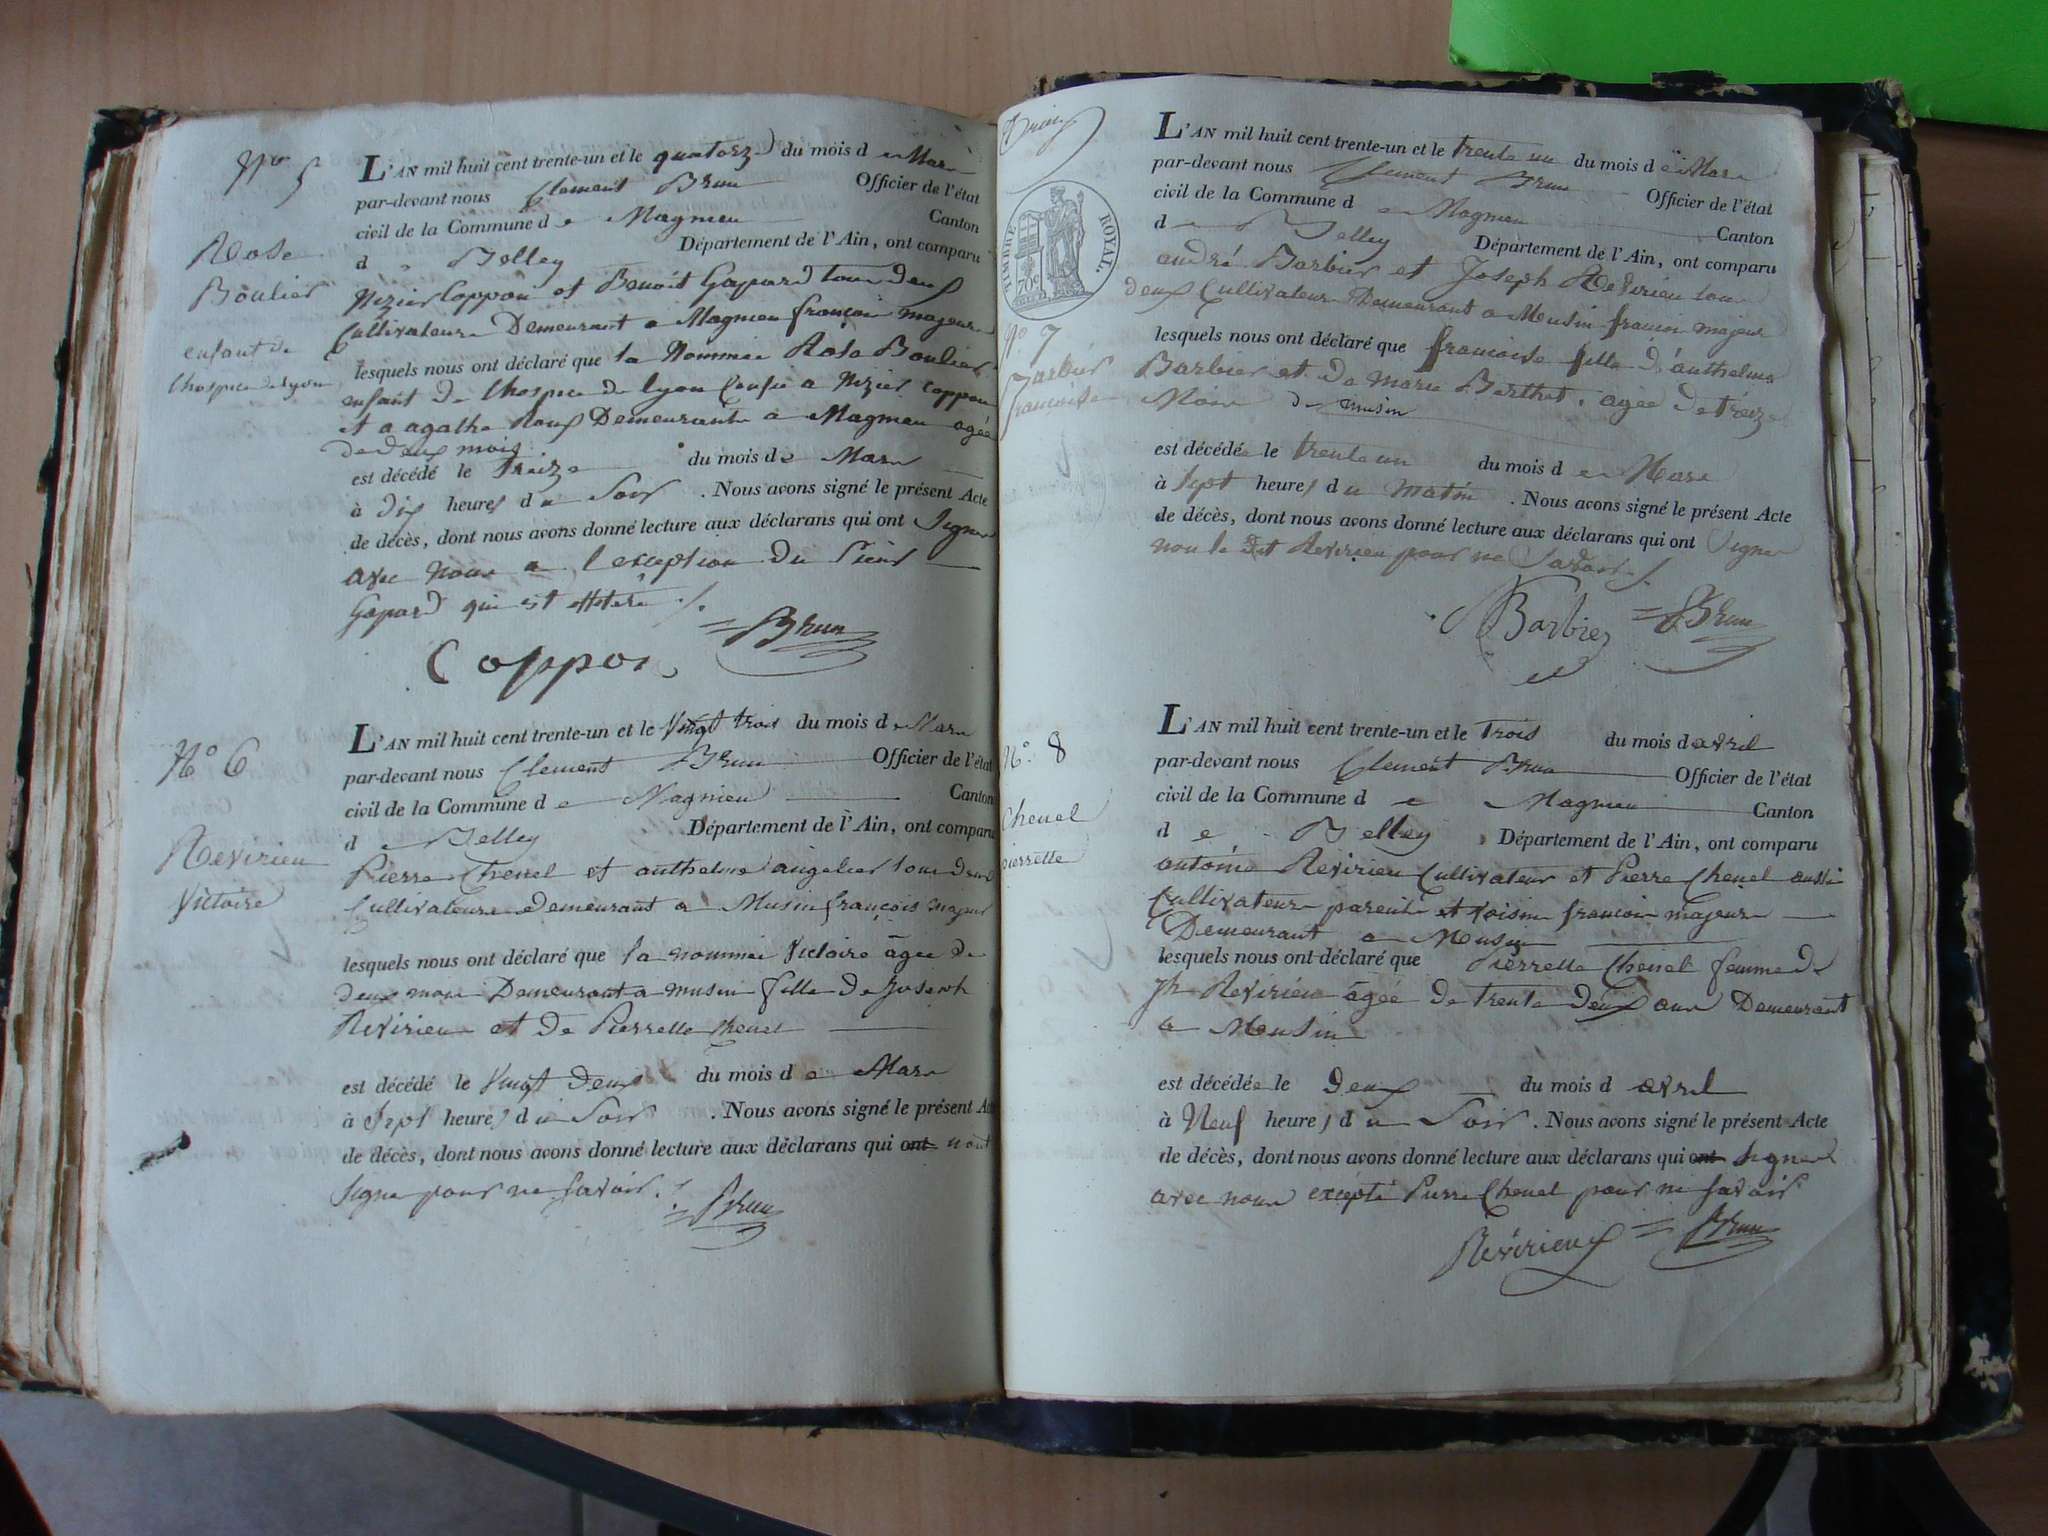 N° 5
Rose
Boulier
enfant de
lhospice de lyon
L'AN mil huit cent trente-un et le quatorze du mois de Mars
par-devant nous Clement Brun Officier de l'état
civil de la Commune de Magnieu Canton
de Belley Département de l'Ain, ont comparu
Nizier Coppon et Benoit Gapard tous deux
Cultivateurs Demeurant a Magnieu françois majeurs
lesquels nous ont déclaré que la Nommée Rose Boulier
enfant de lhospice de lyon Confié a Nizier Coppon
et a agathe Roux Demeurants a Magnieu agée
de deux mois
est décédé le treize du mois de Mars
à dix heures du Soir. Nous avons signé le présent Acte
de décès, dont nous avons donné lecture aux déclarans qui ont Signer
avec nous a l'exception du Sieur
Gapard qui est
Brun
Coppon
N° 6
Revirieu
Victoire
L'AN mil huit cent trente-un et le Vingt trois du mois de Mars
par-devant nous Clement Brun Officier de l'état
civil de la Commune de Magnieu Canton
de Belley Département de l'Ain, ont comparu
Pierre Chenel et anthelme angelier tous deux
Cultivateurs demeurant a Musin françois majeur
lesquels nous ont déclaré que la nommée Victoire âgée de
deux mois Demeurant a musin fille de Joseph
Revirieu et de Pierrette Chenel
est décédé le Vingt Deux du mois de Mars
à Sept heures du Soir. Nous avons signé le présent Acte
de décès, dont nous avons donné lecture aux déclarans qui ont n'ont
Signe pour ne Savoir.
Brun
TIMBRE ROYAL
70c
N° 7
Barbier
francoise
L'AN mil huit cent trente-un et le trente un du mois de Mars
par-devant nous Clement Brun Officier de l'état
civil de la Commune de Magnieu Canton
de Belley Département de l'Ain, ont comparu
andré Barbier et Joseph Revirieu tous
deux Cultivateurs Demeurant a Musin françois majeur
lesquels nous ont déclaré que francoise fille d'anthelme
Barbier et de marie Berthet, agée de treize
Mois de musin
est décédée le trente un du mois de Mars
à Sept heures du matin. Nous avons signé le présent Acte
de décès, dont nous avons donné lecture aux déclarans qui ont Signer
non le dit Revirieu pour ne Savoir
Barbier Brun
N° 8
Chenel
pierrette
L'AN mil huit cent trente-un et le trois du mois d avril
par-devant nous Clement Brun Officier de l'état
civil de la Commune de Magnieu Canton
de Belley Département de l'Ain, ont comparu
antoine Revirieu Cultivateur et Pierre Chenel aussi
Cultivateurs parents et voisins françois majeurs
Demeurant a Musin
lesquels nous ont déclaré que Pierrette Chenel femme de
Jh Revirieu âgée de trente deux ans Demeurant
a Musin
est décédée le deux du mois d avril
à Neuf heures du Soir. Nous avons signé le présent Acte
de décès, dont nous avons donné lecture aux déclarans qui ont Signer
avec nous excepté Pierre Chenel pour ne Savoir
Revirieux Brun